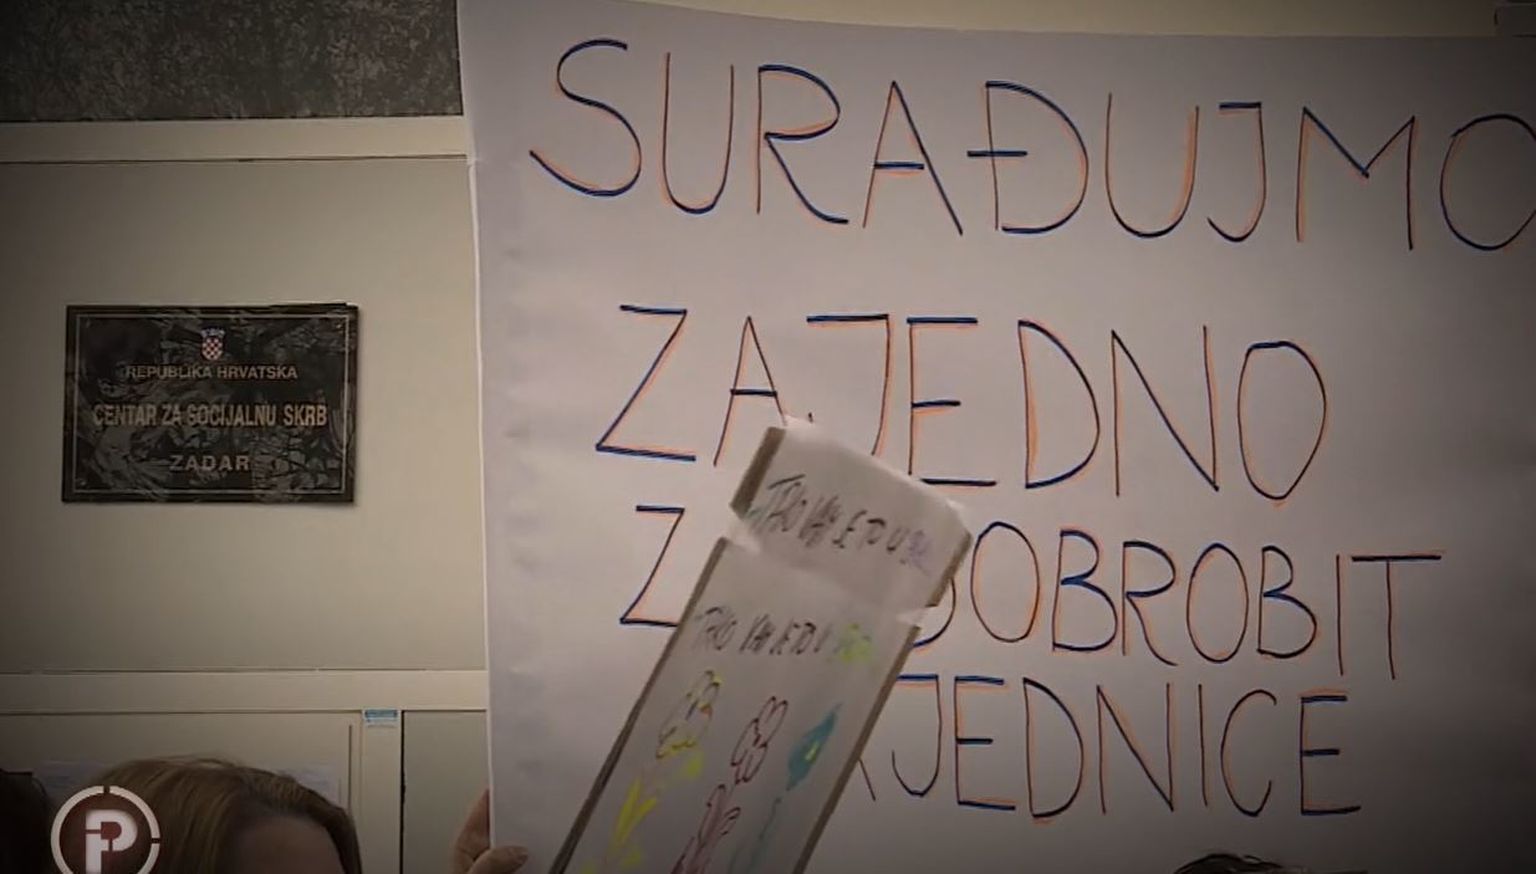 REPUBLIKA HRVATSKA
CENTAR ZA SOCIJALNU SKRB
ZADAR
SURAĐUJMO
ZAJEDNO
DOBROBIT
TAKO VAM JE TO U
TAKO VAM JE TO U
P